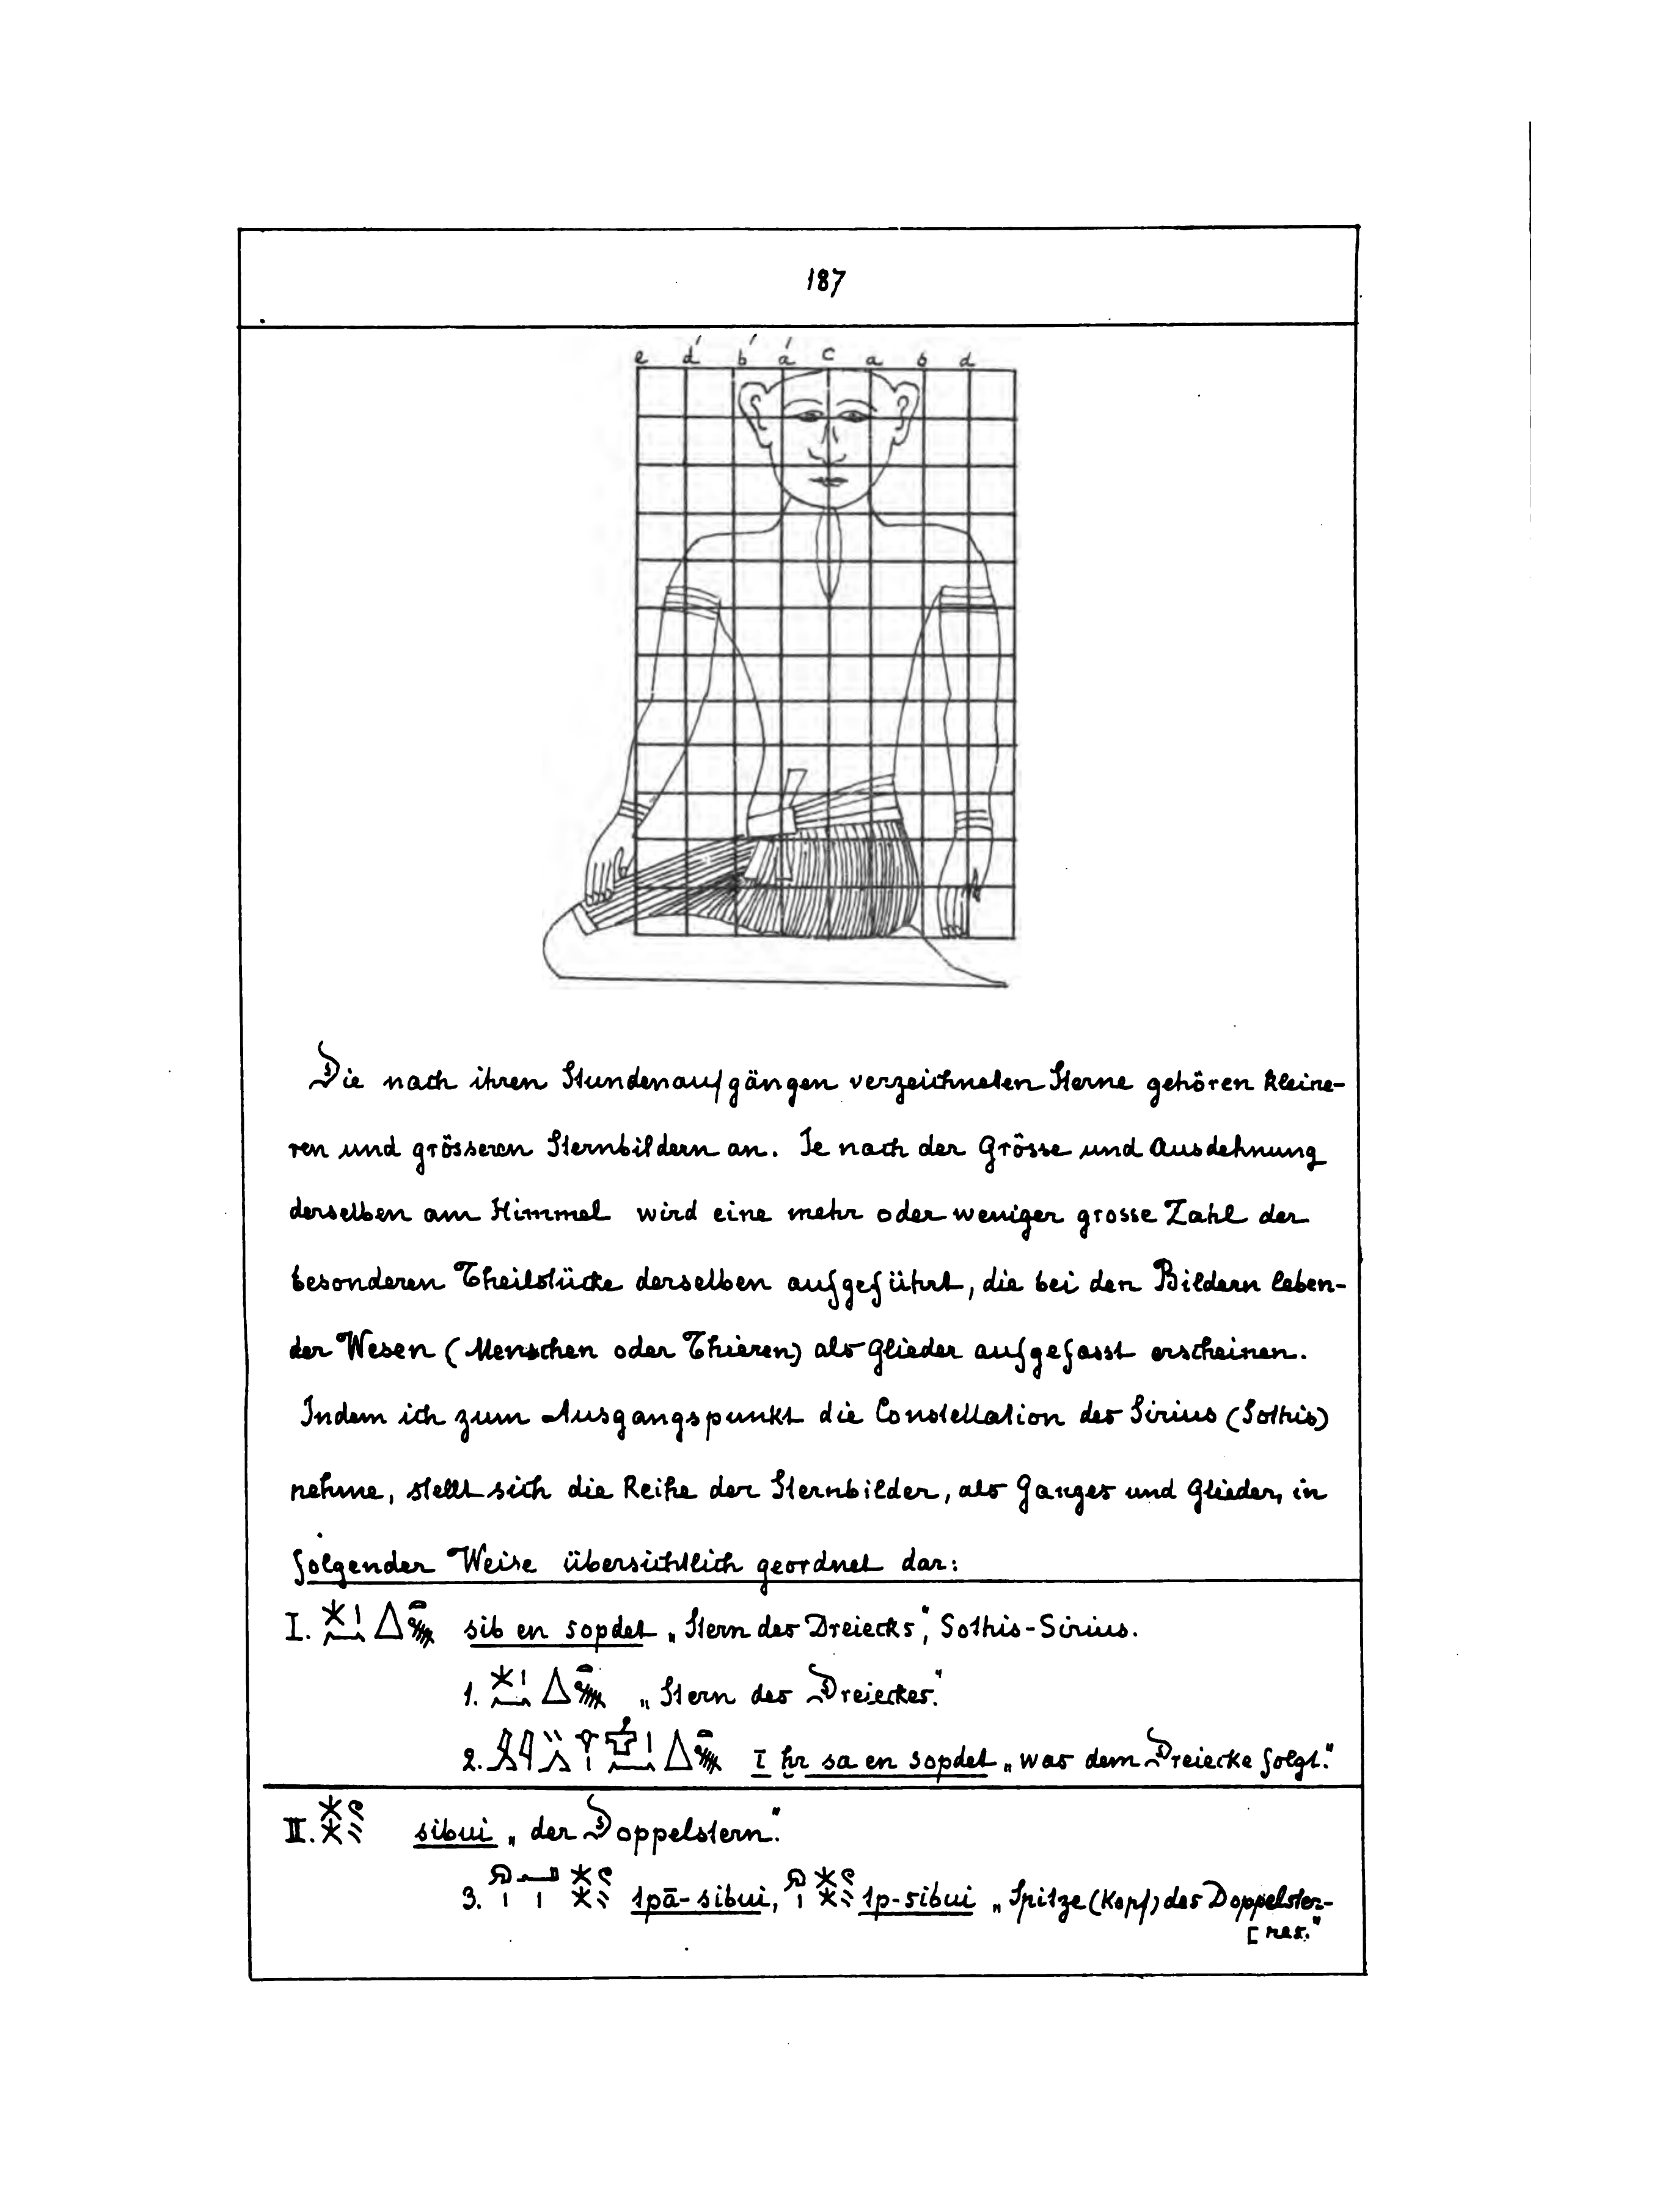 187
e d' b' a' c a b d
Die nach ihren Stundenaufgängen verzeichneten Sterne gehören kleine-
ren und grösseren Sternbildern an. Je nach der Grösse und Ausdehnung
derselben am Himmel wird eine mehr oder weniger grosse Zahl der
besonderen Theilstücke derselben aufgeführt, die bei den Bildern leben-
der Wesen (Menschen oder Thieren) als Glieder aufgefasst erscheinen.
Indem ich zum Ausgangspunkt die Constellation des Sirius (Sothis)
nehme, stellt sich die Reihe der Sternbilder, als Ganzes und Glieder, in
folgender Weise übersichtlich geordnet dar:
I. sib en sopdet „Stern des Dreiecks", Sothis-Sirius.
1. „Stern des Dreieckes."
2. I ḥr sa en sopdet „was dem Dreiecke folgt."
II. sibui „der Doppelstern."
3. tpā-sibui, tp-sibui „Spitze (Kopf) des Doppelster-
[nes."